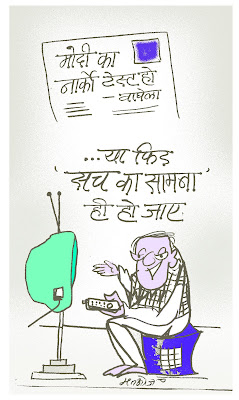 मोदी का
नार्को टेस्ट हो
– वाघेला
...या फिर
'सच का सामना'
ही हो जाए